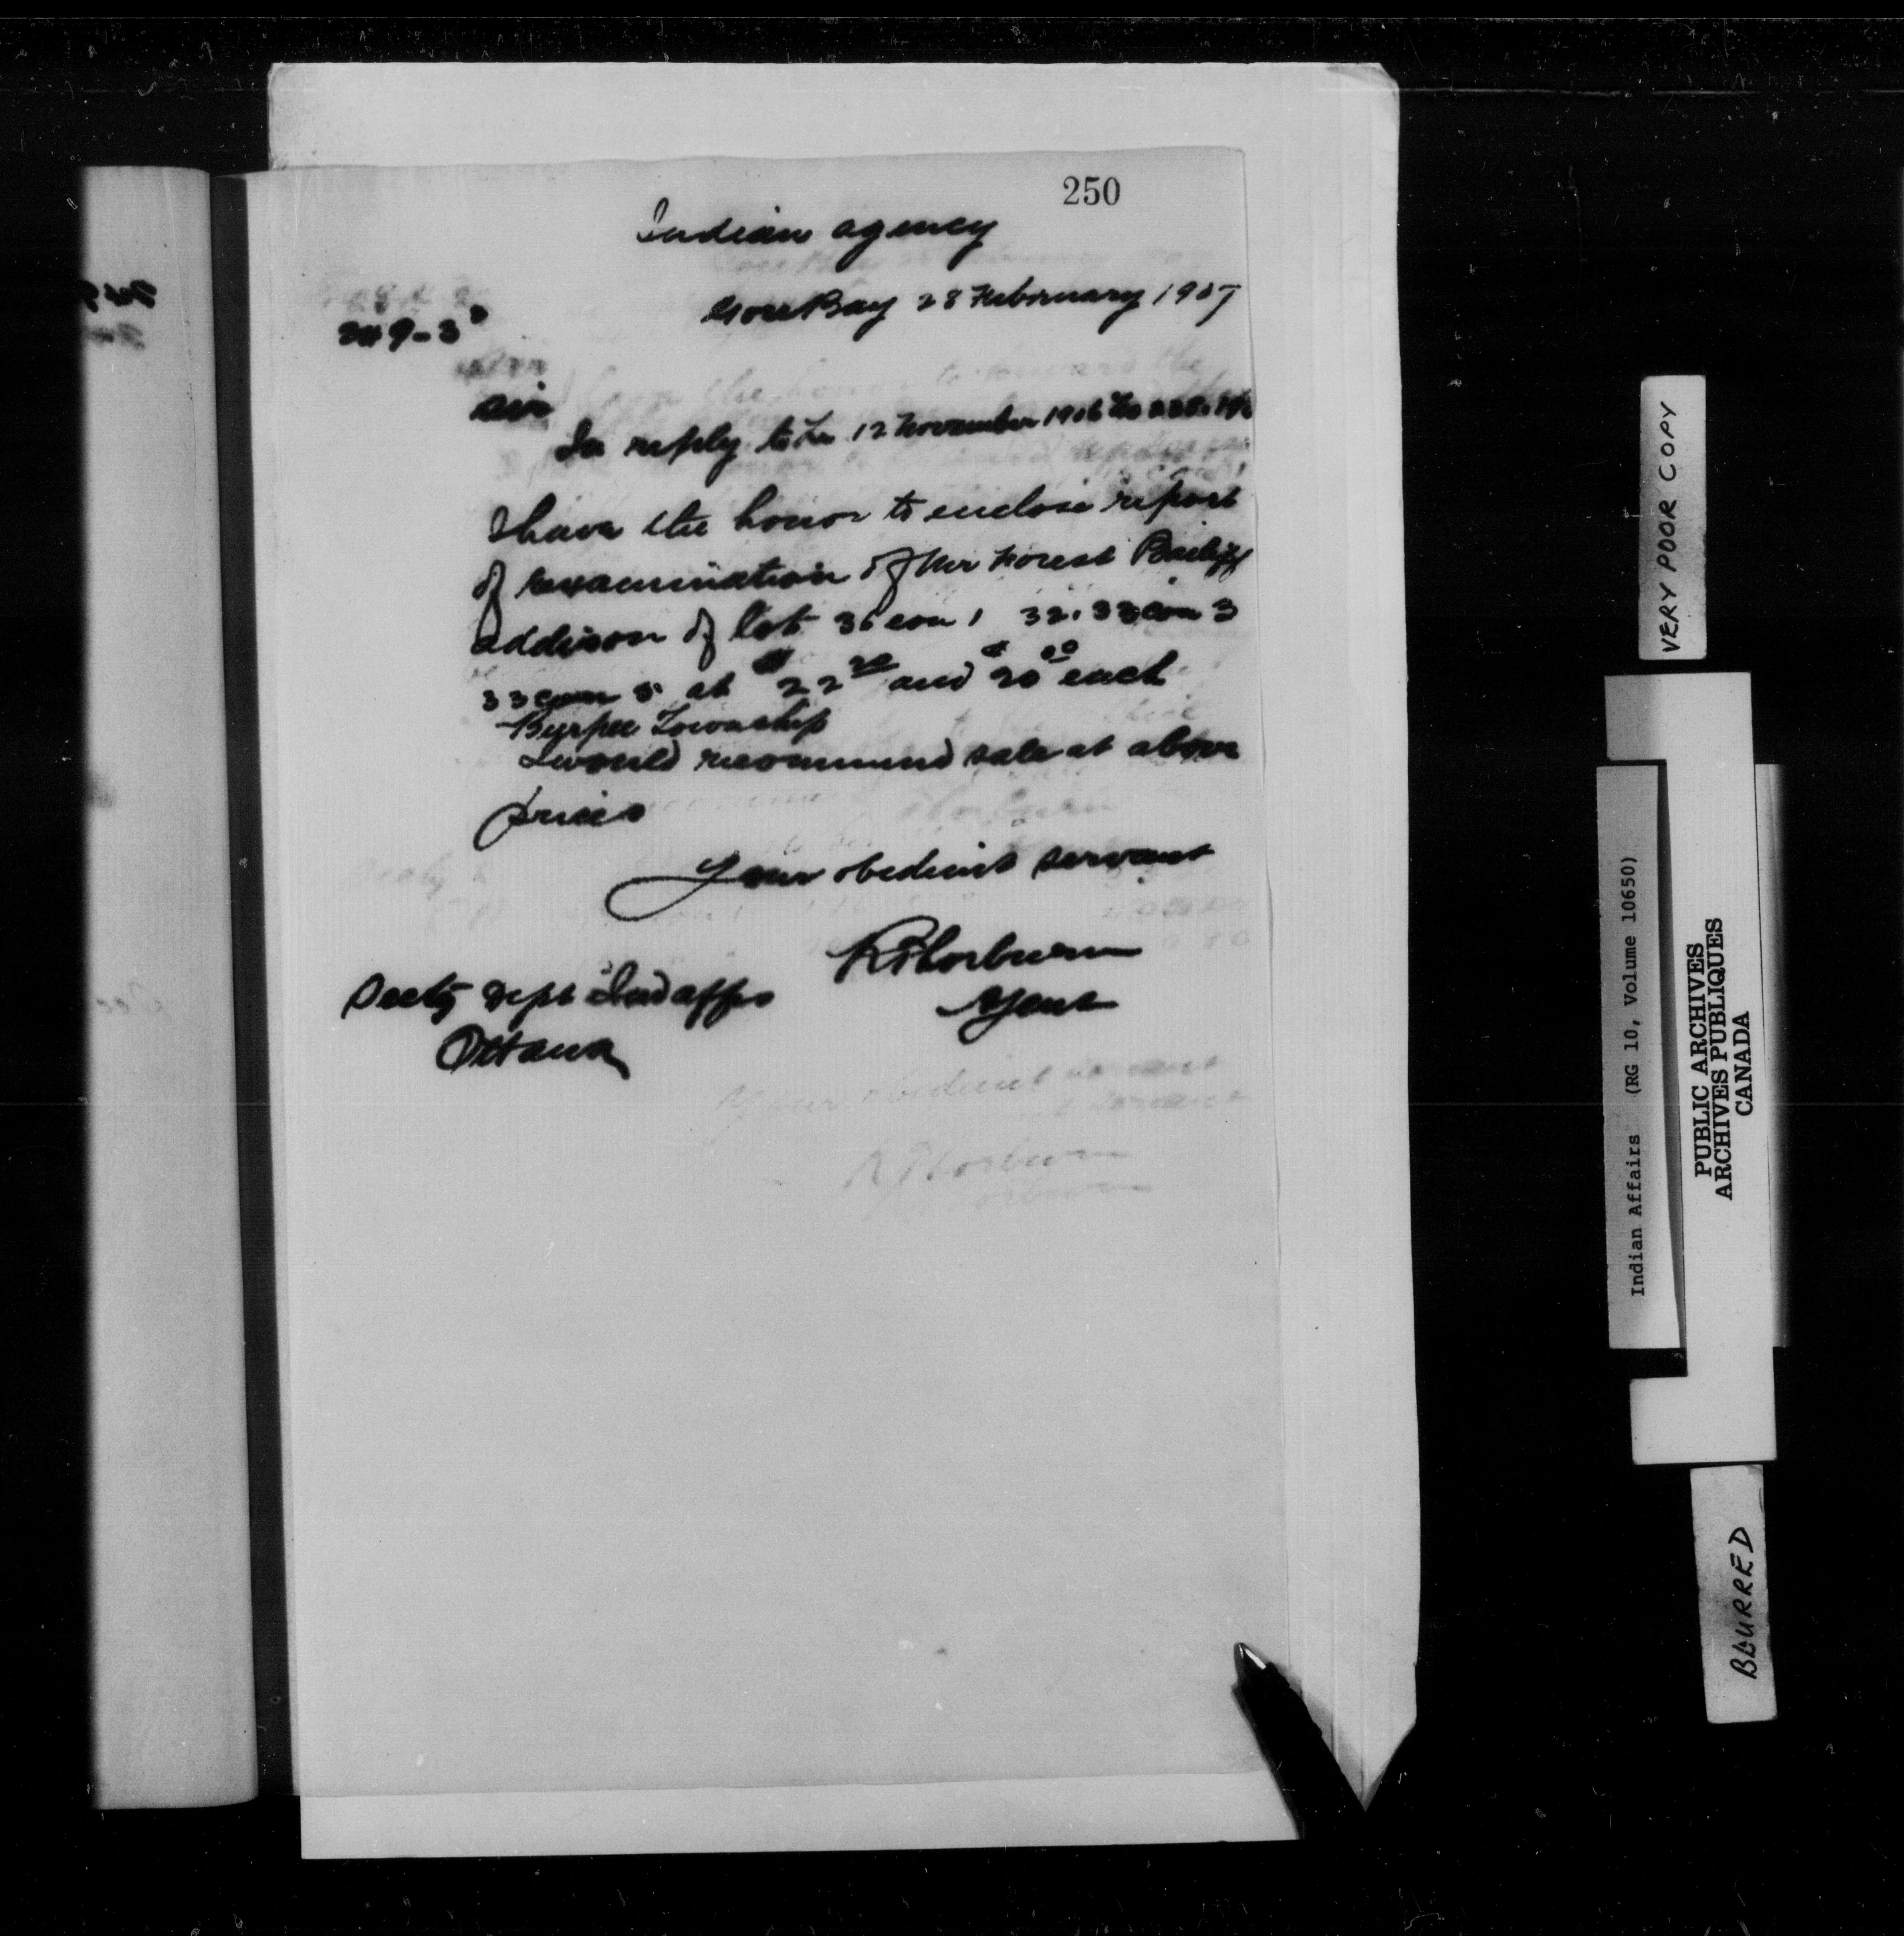 250
Indian agency
Gore Bay 28 February 1907
249-3
Sir
In reply to Lr 12 November 1906 No
I have the honor to enclose report
of examination of Mr Forest Bailiff
Addison of lot 36 con 1 32.33 con 3
33 con 5 at $22 20 and $20 00 each
Byrpee Township
I would recommend sale at above
prices
Your obedient servant
RThorburn
Agent
Secty Dept Ind affrs
Ottawa
Your obedient servant
RThorburn
VERY POOR COPY
Indian Affairs (RG 10, Volume 10650)
PUBLIC ARCHIVES
ARCHIVES PUBLIQUES
CANADA
BLURRED